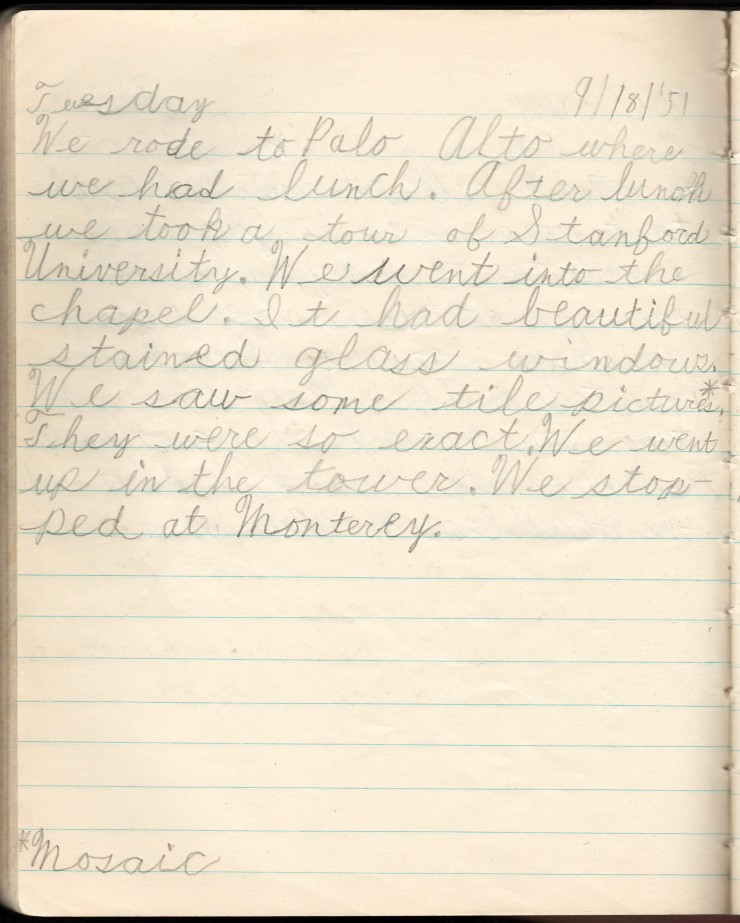 Tuesday 9/18/'51
We rode to Palo Alto where
we had lunch. After lunch
we took a tour of Stanford
University. We went into the
chapel. It had beautiful
stained glass windows.
We saw some tile pictures*.
They were so exact. We went
up in the tower. We stop-
ped at Monterey.
*Mosaic